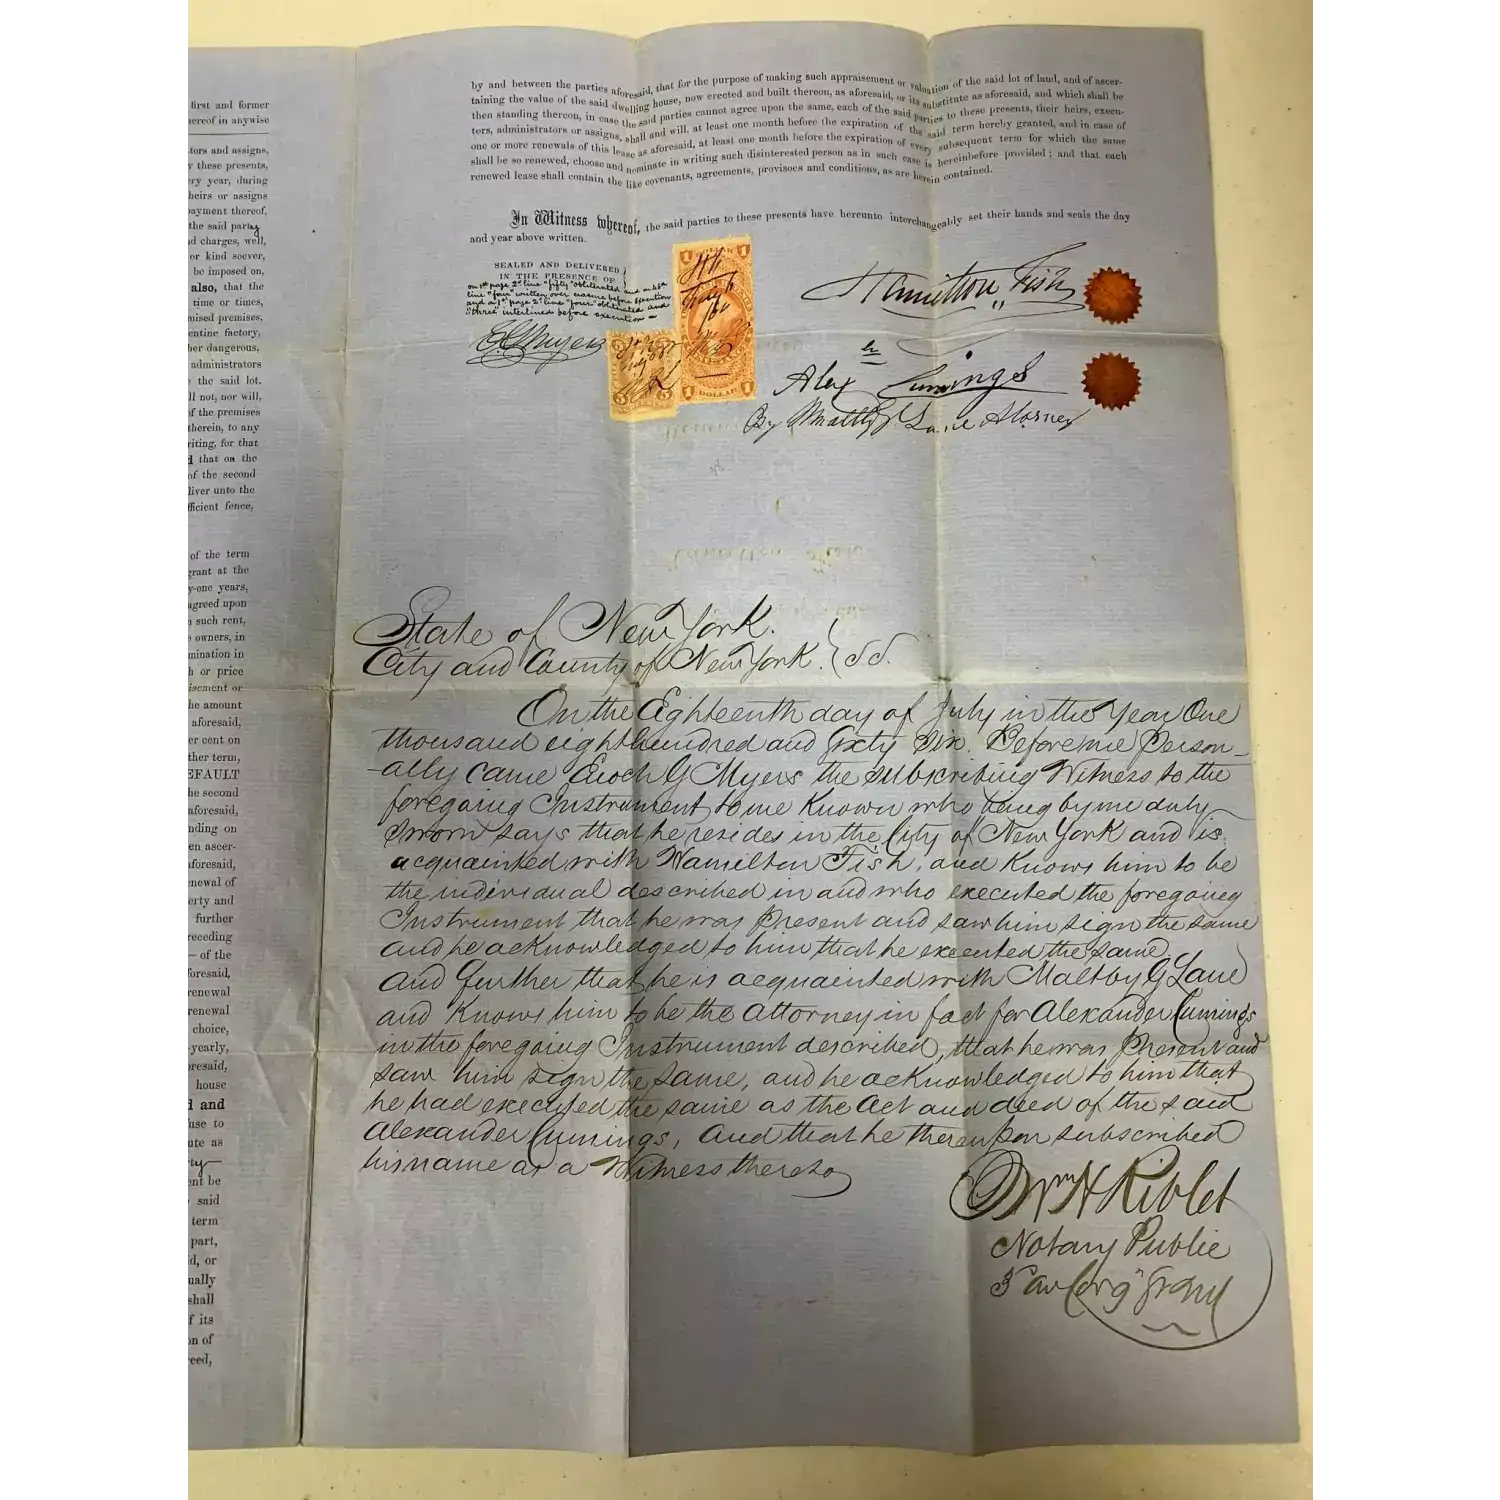 first and former
hereof in anywise
tors and assigns,
y these presents,
ry year, during
heirs or assigns
ayment thereof,
the said party
d charges, well,
or kind soever,
be imposed on,
also, that the
time or times,
mised premises,
entine factory,
her dangerous,
administrators
the said lot.
ll not, nor will,
of the premises
therein, to any
riting, for that
that on the
of the second
liver unto the
fficient fence,
of the term
grant at the
y-one years,
agreed upon
such rent,
owners, in
mination in
h or price
isement or
he amount
aforesaid,
er cent on
ther term,
EFAULT
he second
aforesaid,
nding on
en ascer-
aforesaid,
newal of
erty and
further
receding
— of the
foresaid,
renewal
renewal
choice,
-yearly,
resaid,
house
and
use to
ute as
rty
ent be
said
term
part,
d, or
ually
shall
f its
on of
reed,
by and between the parties aforesaid, that for the purpose of making such appraisement or valuation of the said lot of land, and of ascer-
taining the value of the said dwelling house, now erected and built thereon, as aforesaid, or its substitute as aforesaid, and which shall be
then standing thereon, in case the said parties cannot agree upon the same, each of the said parties to these presents, their heirs, execu-
tors, administrators or assigns, shall and will, at least one month before the expiration of the said term hereby granted, and in case of
one or more renewals of this lease as aforesaid, at least one month before the expiration of every subsequent term for which the same
shall be so renewed, choose and nominate in writing such disinterested person as in such case is hereinbefore provided; and that each
renewed lease shall contain the like covenants, agreements, provisoes and conditions, as are herein contained.
In Witness whereof, the said parties to these presents have hereunto interchangeably set their hands and seals the day
and year above written.
SEALED AND DELIVERED
IN THE PRESENCE OF
on 1st page 2d line "fifty" obliterated and on 4th
line "four" written over erasure before execution
and on 1st page 2d line "four" obliterated and
"three" interlined before execution –
E G Myers
1 DOLLAR 1
1 DOLLAR 1
5 5
Hamilton Fish
Alex Cumings
By Maltby G Lane Attorney
State of New York.
City and County of New York. } ss.
On the Eighteenth day of July in the Year One
thousand eight hundred and Sixty Six. Before me Person-
ally came Enoch G Myers the subscribing Witness to the
foregoing Instrument to me Known who being by me duly
Sworn says that he resides in the City of New York and is
acquainted with Hamilton Fish, and Knows him to be
the individual described in and who executed the foregoing
Instrument that he was Present and saw him sign the same
and he acknowledged to him that he executed the same.
and further that he is acquainted with Maltby G Lane
and Knows him to be the attorney in fact for Alexander Cumings
in the foregoing Instrument described, that he was Present and
saw him sign the same, and he acknowledged to him that
he had executed the same as the Act and deed of the said
Alexander Cumings, and that he thereupon subscribed
his name as a Witness thereto
Wm H Riblet
Notary Public